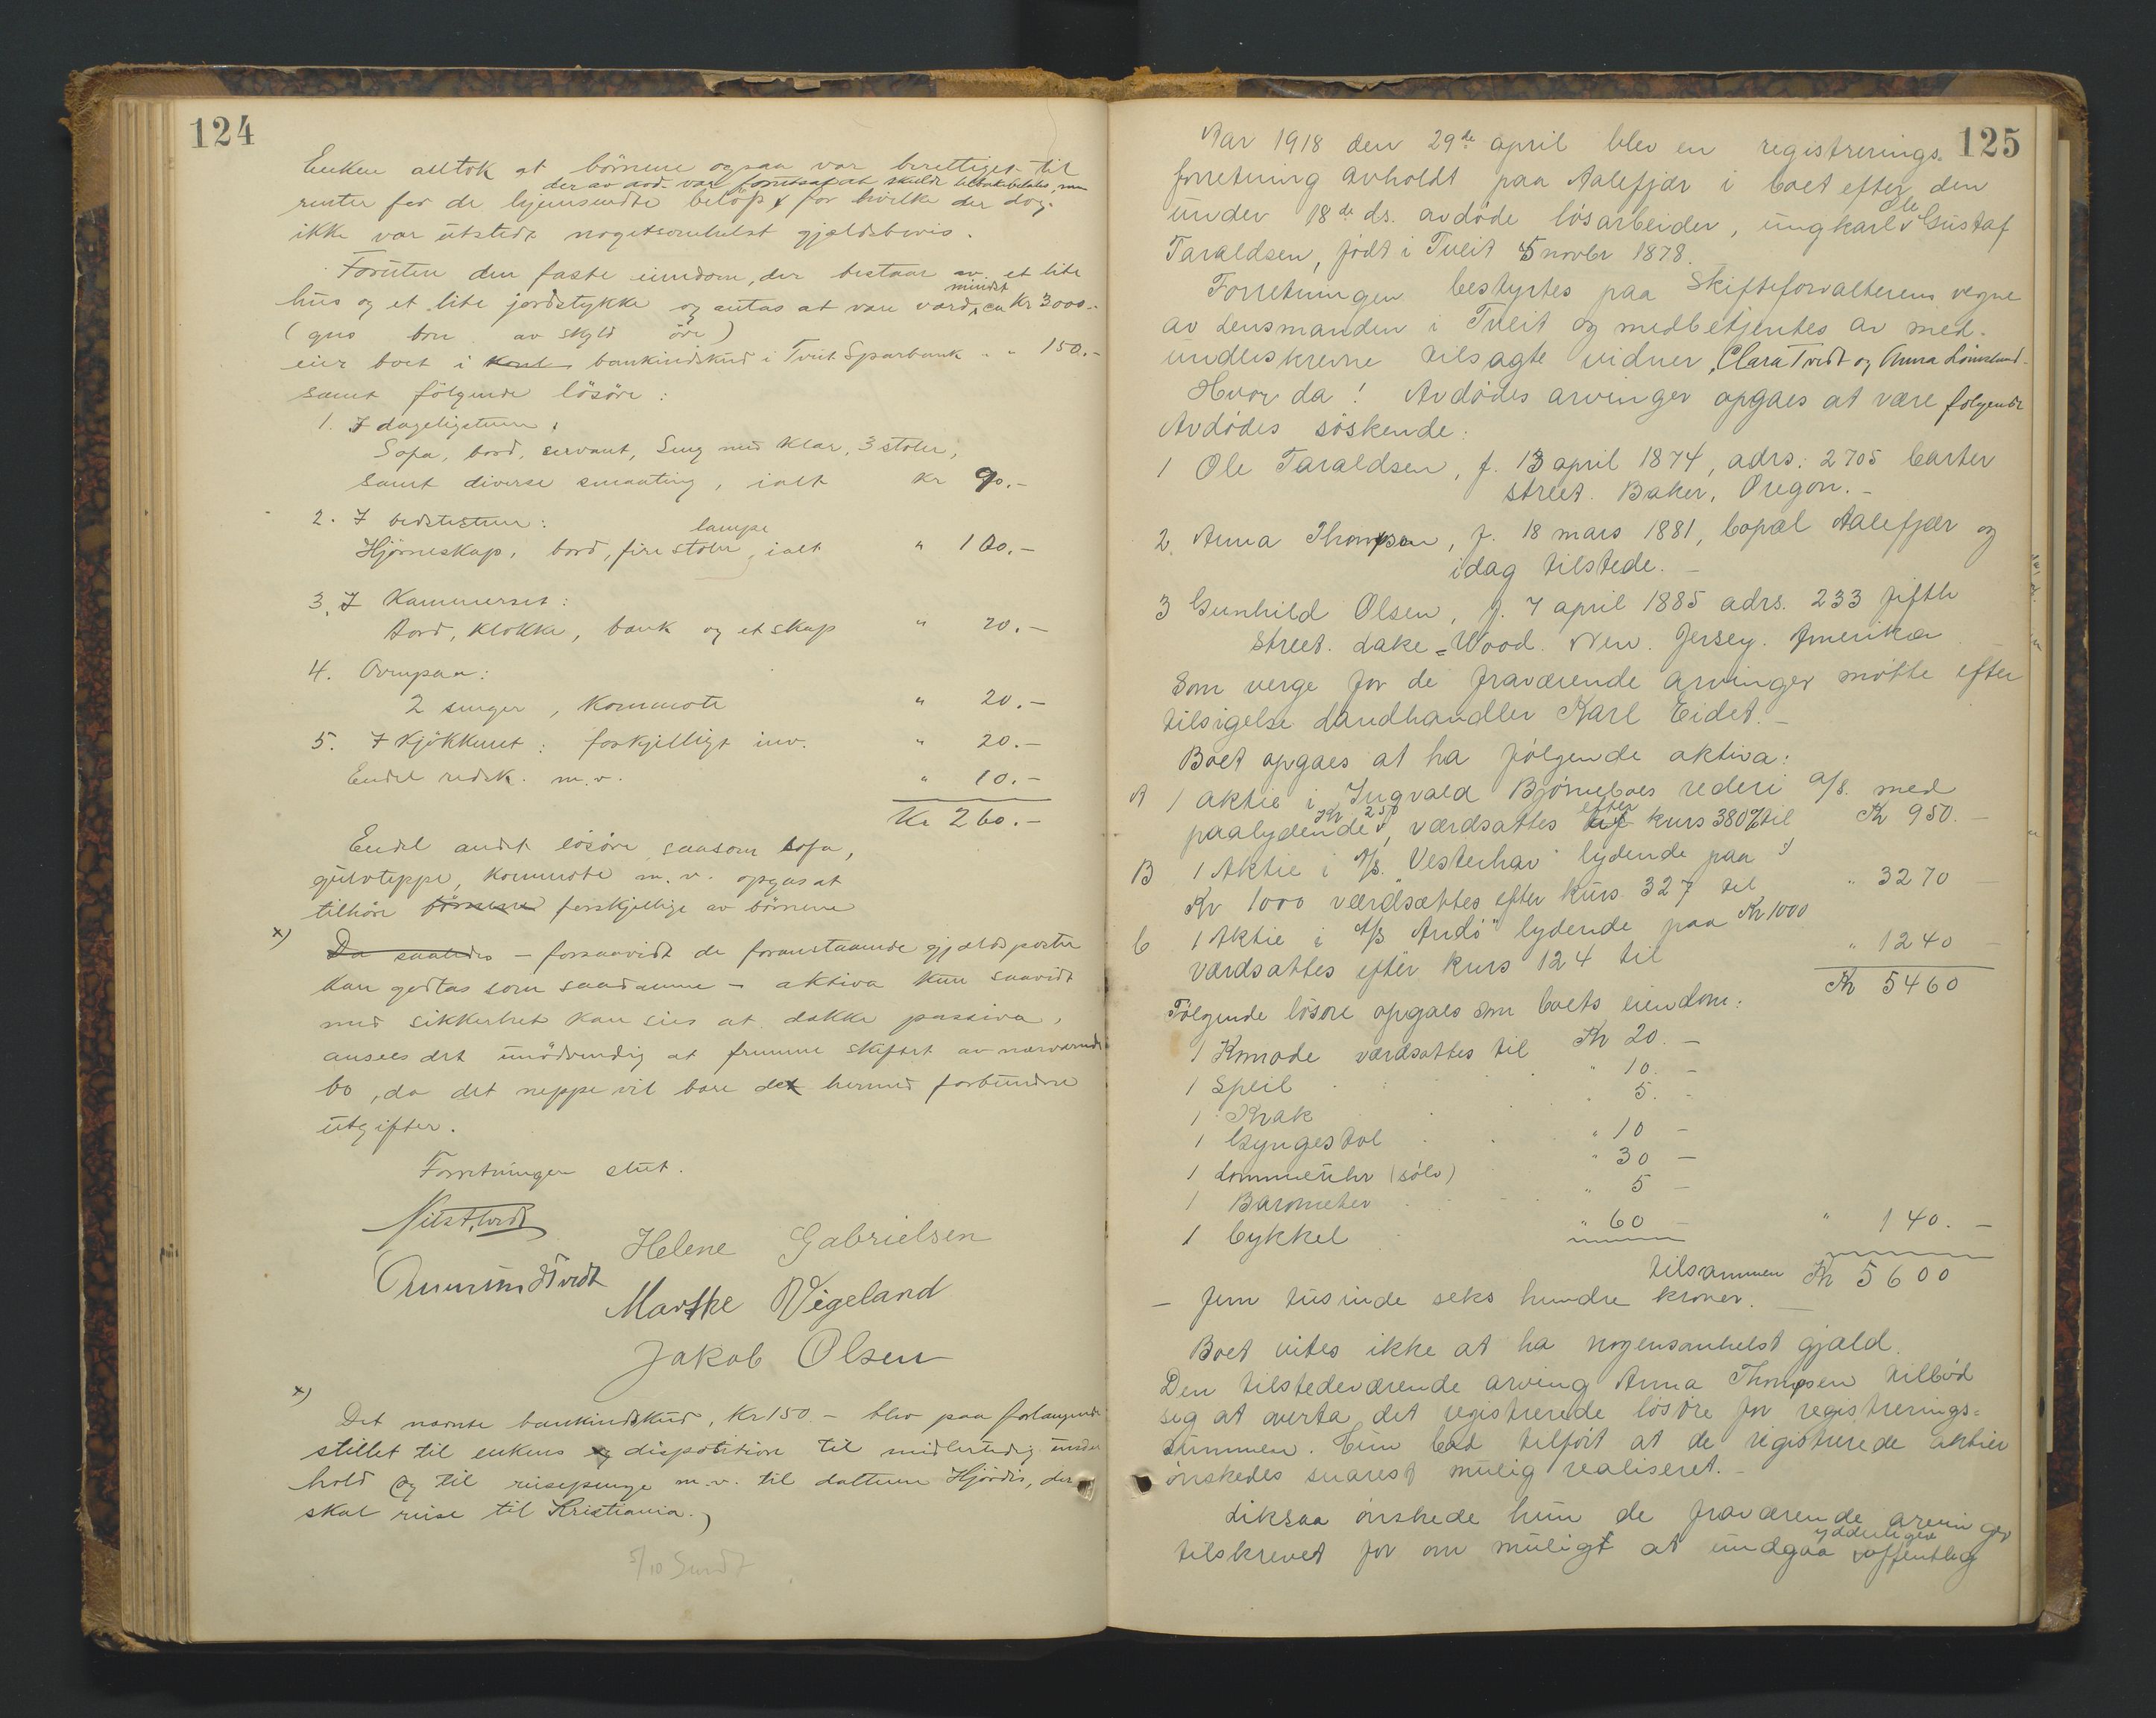 124
Enken alltok at börnene ogsaa var berettiget til
der av avd. var forutsat at skulde tilbakebetales, men
renter for de hjemsendte belöp, for hvilke der dog
ikke var utstedt nogetsomhelst gjældsbevis.
Foruten den faste eiendom, der bestaar av et lite
mindst
hus og et lite jordstykke og antas at være værd ca Kr 3000.-
(gno bno av skyld öre)
eier boet i bankindskud i Tveit Sparbank - " 150.-
samt fölgende lösöre:
1. I dagligstuen:
Sofa, bord, servant, Seng med klær, 3 stoler,
samt diverse smaating, ialt Kr 90.-
2. I bedstestuen:
lampe
Hjörneskap, bord, fire stoler, ialt " 100.-
3. I Kammerset:
Bord, klokke, bænk og et skap " 20.-
4. Ovenpaa:
2 senger, Kommote " 20.-
5. I Kjökkenet: forskjelligt inv. " 20.-
Endel redsk. m.v. " 10.-
Kr 260.-
Endel andet lösöre saasom sofa,
gulvteppe, kommode m.v. opgaes at
tilhöre börnene forskjellige av börnene
x)
Da saaledes - forsaavidt de foranstaaende gjældsposter
kan godtas som saadanne - aktiva kun saavidt
med sikkerhet kan sies at dække passiva,
ansees det unödvendig at fremme skiftet av nærværende
bo, da det neppe vil bære de hermed forbundne
utgifter.
Forretningen slut.
Nils Tvedt
Helene Gabrielsen
Ommund Tvedt
Marthe Vigeland
Jakob Olsen
x)
Det nævnte bankindskud, Kr 150.- blev paa forlangende
stillet til enkens disposition til midlertidig under
hold og til reisepenge m.v. til datteren Hjördis, der
skal reise til Kristiania.
5/10 Sendt
125
Aar 1918 den 29de april blev en registrerings-
forretning avholdt paa Aalefjær i boet efter den
Ole
under 18de ds. avdöde lösarbeider, ungkarl Gustaf
Taraldsen, födt i Tveit 5 novbr 1878.
Forretningen bestyrtes paa Skifteforvalterens vegne
av Lensmanden i Tveit og medbetjentes av med-
underskrevne tilsagte vidner, Clara Tvedt og Anna
Hvor da! Avdödes arvinger opgaes at være fölgende
Avdödes söskende:
1 Ole Taraldsen, f. 13 april 1874, adrs: 2705 Carter
street. Baker, Oregon. -
2. Anna Thompsen, f. 18 mars 1881, bopæl Aalefjær og
idag tilstede. -
3 Gunhild Olsen, f. 7 april 1885 adrs. 233 fifth
street. Lake=Wood. New. Jersey. Amerika
Som verge for de fraværende arvinger mötte efter
tilsigelse Landhandler Karl Eidet. -
Boet opgaes at ha fölgende aktiva:
A 1 aktie i Ingvald Bjørneboes rederi a/s. med
Kr 250 efter
paalydende, værdsattes kurs 380% til Kr 950.-
B 1 Aktie i A/S. "Vesterhav" lydende paa
Kr 1000 værdsættes efter kurs 327 til " 3270 -
C 1 Aktie i A/S "Andö" lydende paa Kr 1000
værdsattes efter kurs 124 til " 1240 -
Kr 5460
Fölgende lösöre opgaes som boets eiendom:
1 Komode værdsattes til Kr 20. -
1 Speil " 10. -
1 Krak " 5. -
1 Gyngestol " 10 -
1 Lommeuhr (sölv) " 30 -
1 Barometer " 5 -
1 Cykkel " 60 - " 140. -
tilsammen Kr 5600
- fem tusinde seks hundre kroner. -
Boet vites ikke at ha nogensomhelst gjæld.
Den tilstedeværende arving Anna Thompsen tilböd
sig at overta det registrerede lösöre for registrerings=
summen. Hun bad tilfört at de registrerede aktier
önskedes snarest mulig realiseret. -
Liksaa önskede hun de fraværende arvinger
ydderligere
tilskrevet for om muligt at undgaa offentlig